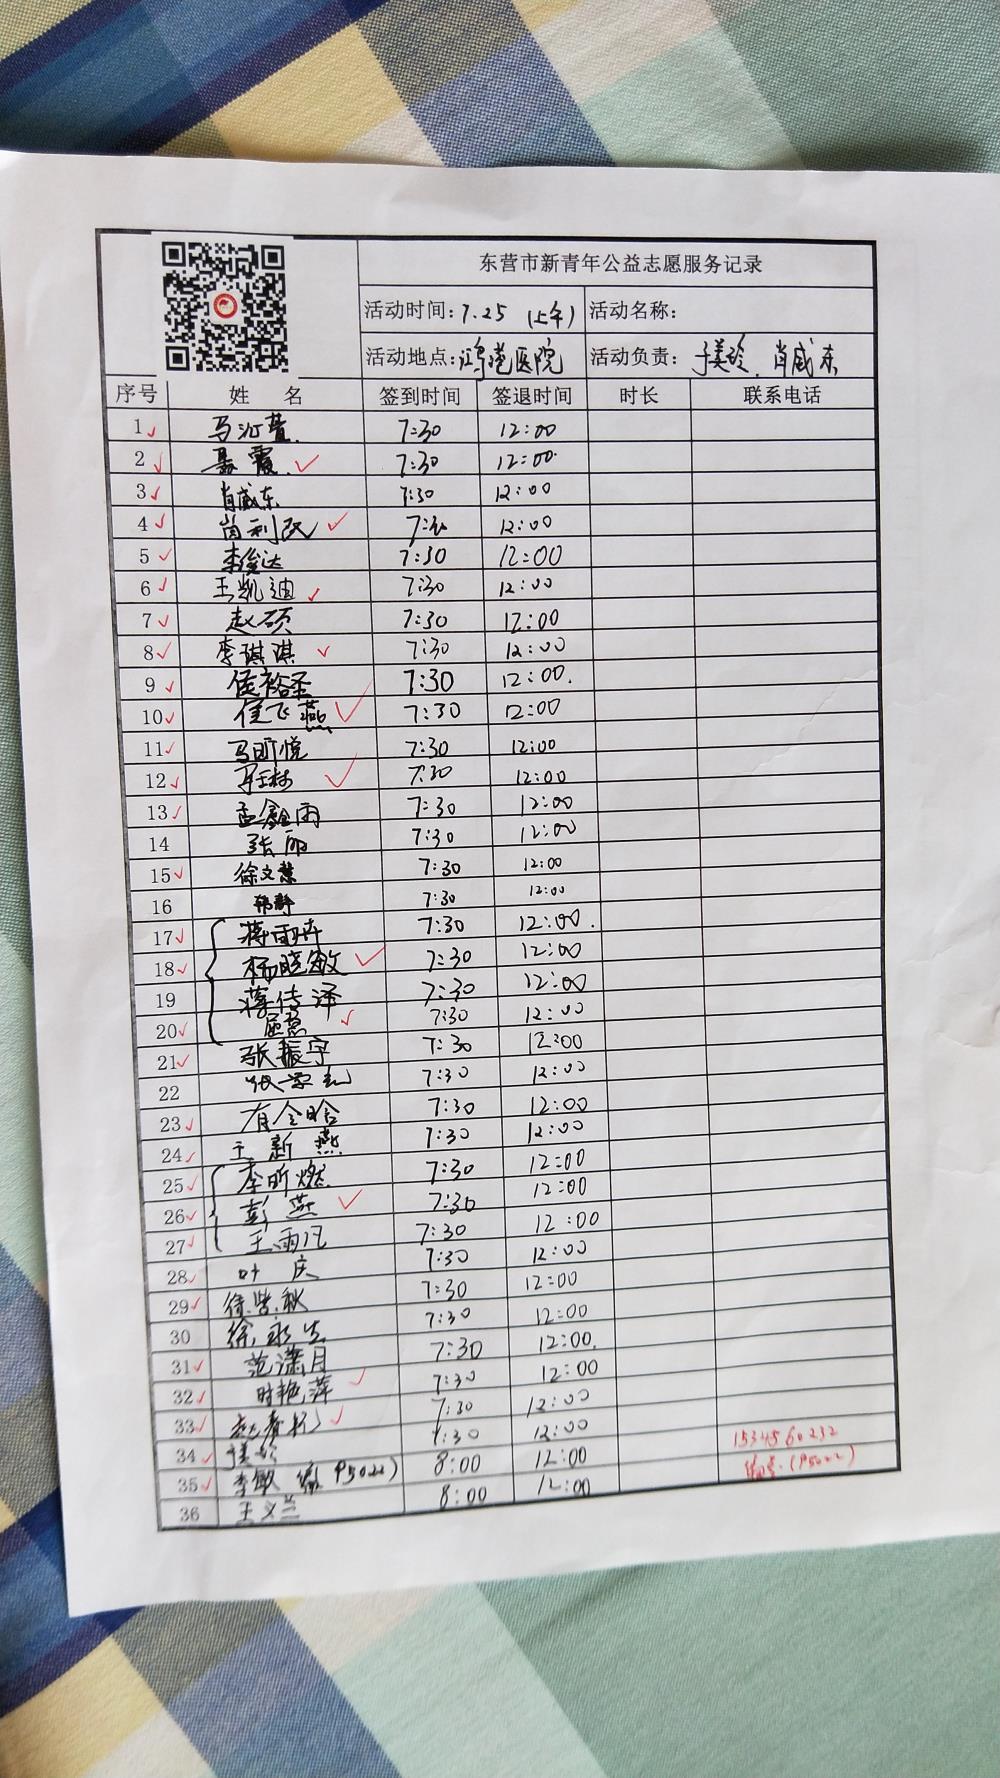 东营市新青年公益志愿服务记录
活动时间：7.25（上午） 活动名称：
活动地点：鸿港医院 活动负责：于美玲、肖威东
序号 姓 名 签到时间 签退时间 时长 联系电话
1 7:30 12:00
2 聂霞 7:30 12:00
3 肖威东 7:30 12:00
4 尚利改 12:00
5 李俊达 7:30 12:00
6 王凯迪 7:30 12:00
7 赵硕 7:30 12:00
8 李琪琪 7:30 12:00
9 侯裕圣 7:30 12:00
10 侯飞燕 7:30 12:00
11 马昕悦 7:30 12:00
12 7:30 12:00
13 孟鑫雨 7:30 12:00
14 张丽 7:30 12:00
15 徐文慧 7:30 12:00
16 韩静 7:30 12:00
17 蒋雨卉 7:30 12:00
18 杨晓敏 7:30 12:00
19 蒋传泽 7:30 12:00
20 7:30 12:00
21 张振宇 7:30 12:00
22 7:30 12:00
23 7:30 12:00
24 王新燕 7:30 12:00
25 李昕燃 7:30 12:00
26 彭燕 7:30 12:00
27 王雨凡 7:30 12:00
28 叶庆 7:30 12:00
29 7:30 12:00
30 徐永生 7:30 12:00
31 范潇月 7:30 12:00
32 时艳萍 7:30 12:00
33 7:30 12:00
34 7:30 12:00 1534560232
35 李敏 8:00 12:00 编号:(P5022)
36 王义兰 8:00 12:00